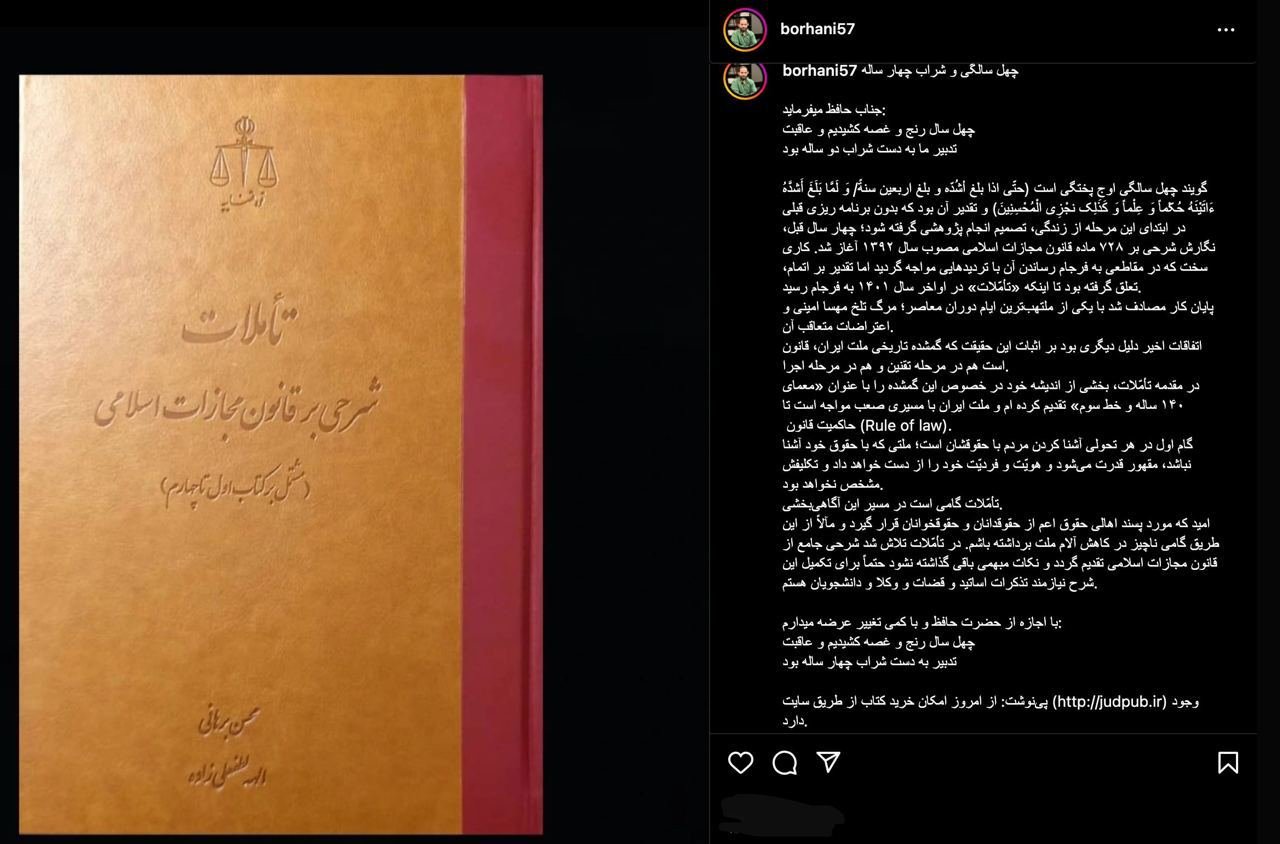 قوه قضاییه
تأملات
شرحی بر قانون مجازات اسلامی
(مشتمل بر کتاب اول تا چهارم)
محسن برهانی
الهه لطفعلی‌زاده
borhani57
borhani57 چهل سالگی و شراب چهار ساله
جناب حافظ میفرماید:
چهل سال رنج و غصه کشیدیم و عاقبت
تدبیر ما به دست شراب دو ساله بود
گویند چهل سالگی اوج پختگی است (حتّی اذا بلغ أشُدّه و بلغ اربعین سنةً/ وَ لَمَّا بَلَغَ أَشُدَّهُ
ءَاتَيْنَهُ حُكْماً وَ عِلْماً وَ كَذَلِكَ نَجْزِي الْمُحْسِنِينَ) و تقدیر آن بود که بدون برنامه ریزی قبلی
در ابتدای این مرحله از زندگی، تصمیم انجام پژوهشی گرفته شود؛ چهار سال قبل،
نگارش شرحی بر ۷۲۸ ماده قانون مجازات اسلامی مصوب سال ۱۳۹۲ آغاز شد. کاری
سخت که در مقاطعی به فرجام رساندن آن با تردیدهایی مواجه گردید اما تقدیر بر اتمام،
تعلق گرفته بود تا اینکه «تأمّلات» در اواخر سال ۱۴۰۱ به فرجام رسید.
پایان کار مصادف شد با یکی از ملتهب‌ترین ایام دوران معاصر؛ مرگ تلخ مهسا امینی و
اعتراضات متعاقب آن.
اتفاقات اخیر دلیل دیگری بود بر اثبات این حقیقت که گمشده تاریخی ملت ایران، قانون
است هم در مرحله تقنین و هم در مرحله اجرا.
در مقدمه تأمّلات، بخشی از اندیشه خود در خصوص این گمشده را با عنوان «معمای
۱۴۰ ساله و خط سوم» تقدیم کرده ام و ملت ایران با مسیری صعب مواجه است تا
حاکمیت قانون (Rule of law).
گام اول در هر تحولی آشنا کردن مردم با حقوقشان است؛ ملتی که با حقوق خود آشنا
نباشد، مقهور قدرت می‌شود و هویّت و فردیّت خود را از دست خواهد داد و تکلیفش
مشخص نخواهد بود.
تأمّلات گامی است در مسیر این آگاهی‌بخشی.
امید که مورد پسند اهالی حقوق اعم از حقوقدانان و حقوقخوانان قرار گیرد و مآلاً از این
طریق گامی ناچیز در کاهش آلام ملت برداشته باشم. در تأمّلات تلاش شد شرحی جامع از
قانون مجازات اسلامی تقدیم گردد و نکات مبهمی باقی گذاشته نشود حتماً برای تکمیل این
شرح نیازمند تذکرات اساتید و قضات و وکلا و دانشجویان هستم.
با اجازه از حضرت حافظ و با کمی تغییر عرضه میدارم:
چهل سال رنج و غصه کشیدیم و عاقبت
تدبیر به دست شراب چهار ساله بود
پی‌نوشت: از امروز امکان خرید کتاب از طریق سایت (http://judpub.ir) وجود
دارد.